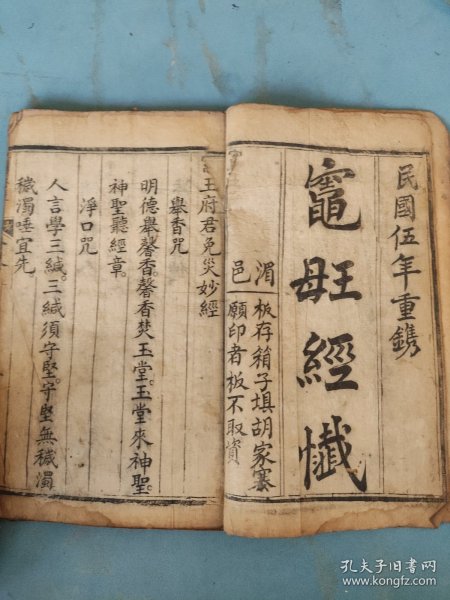 民國伍年重鐫
竈王母經懺
湄邑
板存箱子填胡家寨
願印者板不取資
王府君免災妙經
舉香咒
明德舉馨香。馨香焚玉堂。玉堂來神聖。
神聖聽經章。
淨口咒
人言學三緘。三緘須守堅。守堅無穢濁
穢濁唾宜先。
孔夫子旧书网
www.kongfz.com